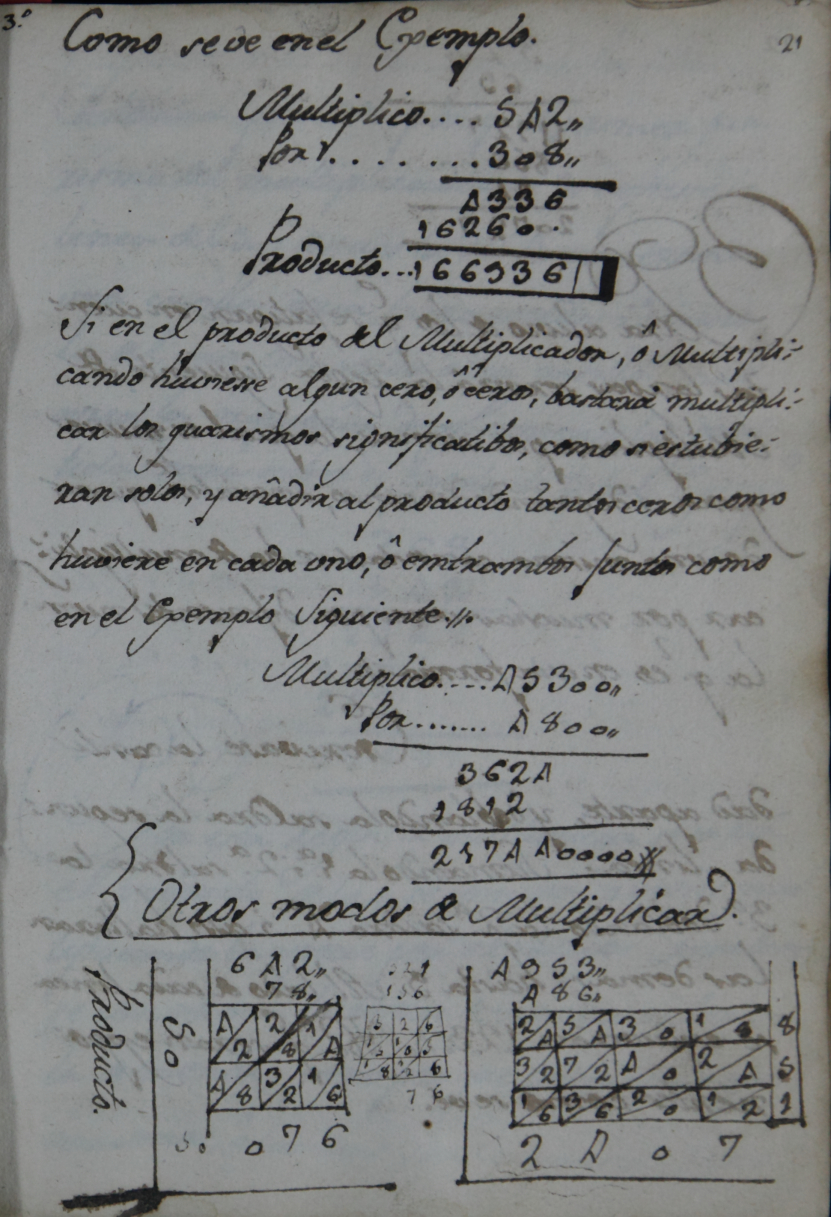 3.º
21
Como se ve en el Exemplo.
Multiplico.... 542,,
Por......... 308,,
4336
16260.
Producto... 166936
Si en el producto del Multiplicador, ô Multipli-
cando huviese algun cero, ô ceros, bastará multipli-
car los guarismos significatibos, como si estubie-
ran solos, y añadir al producto tantos ceros como
huviere en cada uno, ô entrambos Juntos como
en el Exemplo Siguiente.
Multiplico.... 45300,,
Por....... 4800,,
3624
1812
217440000
Otros modos de Multiplicar.
Producto.
50
642,,
78,,
4/2 2/8 1/4
4/8 3/2 1/6
50 0 7 6
7 6
4953,,
486,,
2/4 5/4 3/0 1/8 8
3/2 7/2 4/0 2/4 5
1/6 3/6 2/0 1/2 1
2 4 0 7